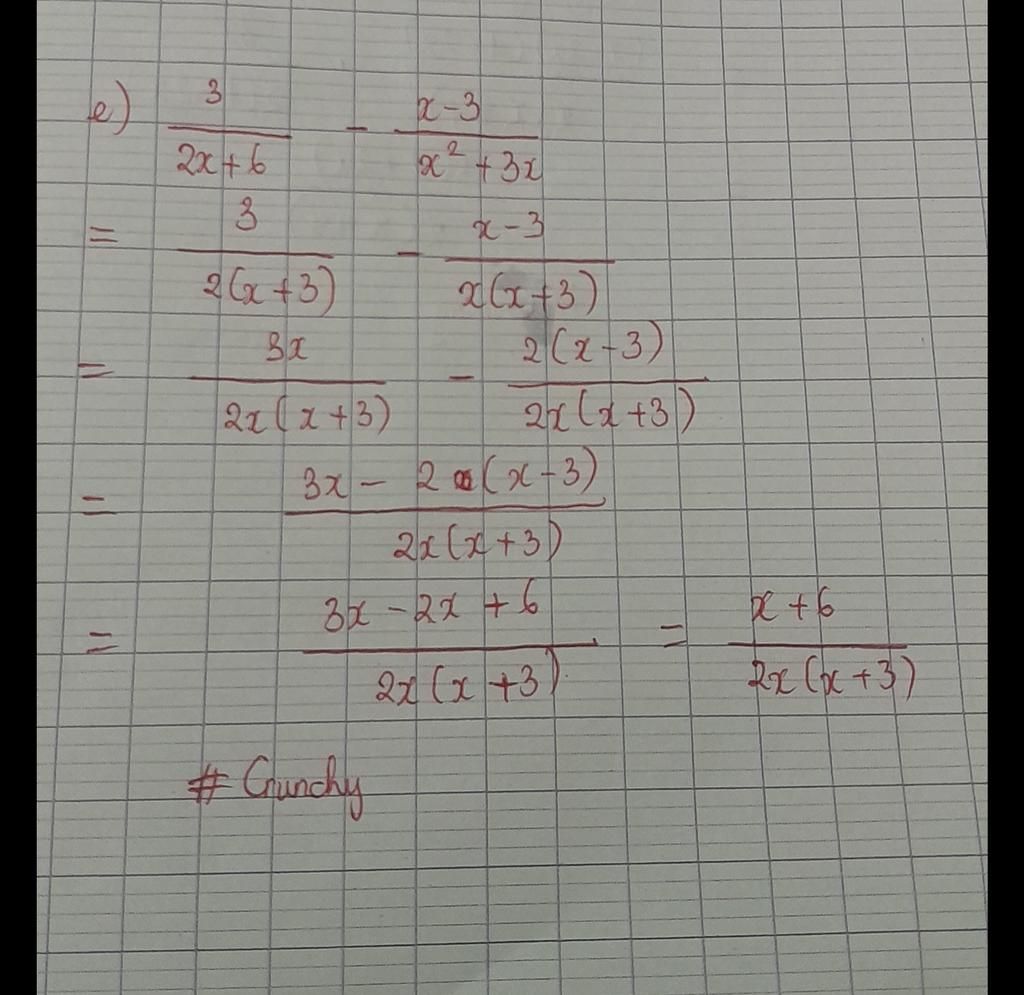 e) 3/(2x+6) - (x-3)/(x²+3x)
= 3/(2(x+3)) - (x-3)/(x(x+3))
= 3x/(2x(x+3)) - 2(x-3)/(2x(x+3))
= (3x - 2(x-3))/(2x(x+3))
= (3x-2x+6)/(2x(x+3)) = (x+6)/(2x(x+3))